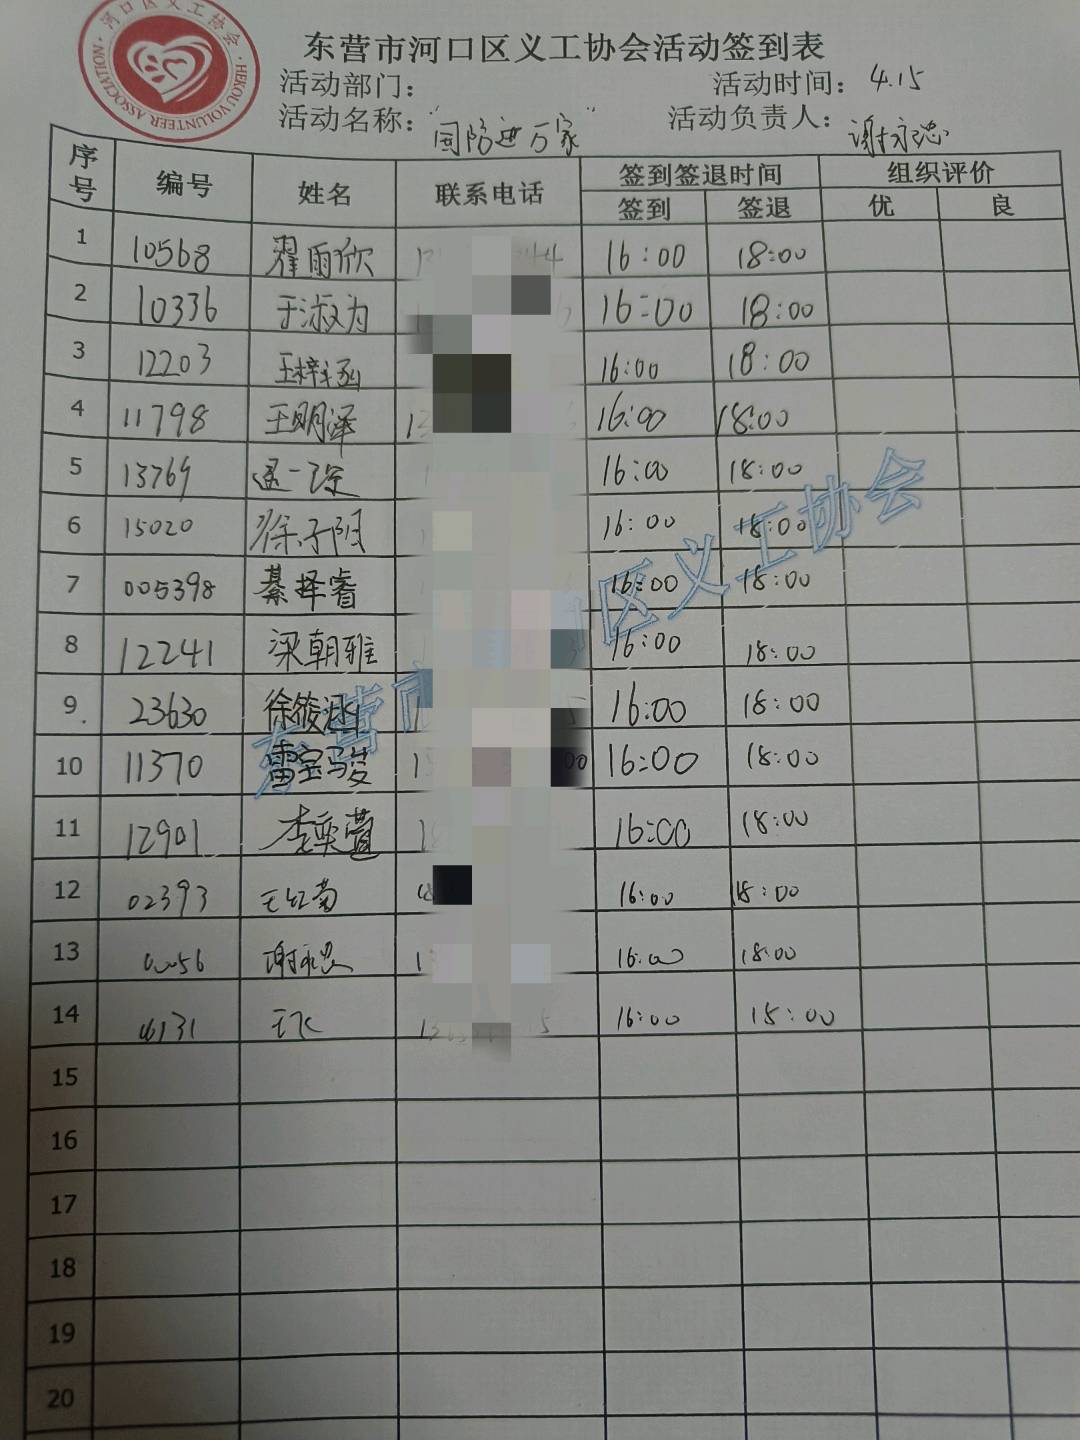 河口区义工协会
HEKOU VOLUNTEER ASSOCIATION
东营市河口区义工协会活动签到表
活动部门： 活动时间： 4.15
活动名称： "国防进万家" 活动负责人： 谢永忠
序号 编号 姓名 联系电话 签到签退时间 组织评价
签到 签退 优 良
1 10568 翟雨欣 16:00 18:00
2 10336 于淑为 16:00 18:00
3 12203 王梓涵 16:00 18:00
4 11798 王明泽 16:00 18:00
5 13769 孟一 16:00 18:00
6 15020 徐子阳 16:00 18:00
7 005398 綦择睿 16:00 18:00
8 12241 梁朝雅 16:00 18:00
9 23630 徐筱涵 16:00 18:00
10 11370 雷宝骏 16:00 18:00
11 12901 李奕萱 16:00 18:00
12 02393 王红菊 16:00 18:00
13 0056 谢永忠 16:00 18:00
14 王飞 16:00 18:00
15
16
17
18
19
20
东营市 区义工协会